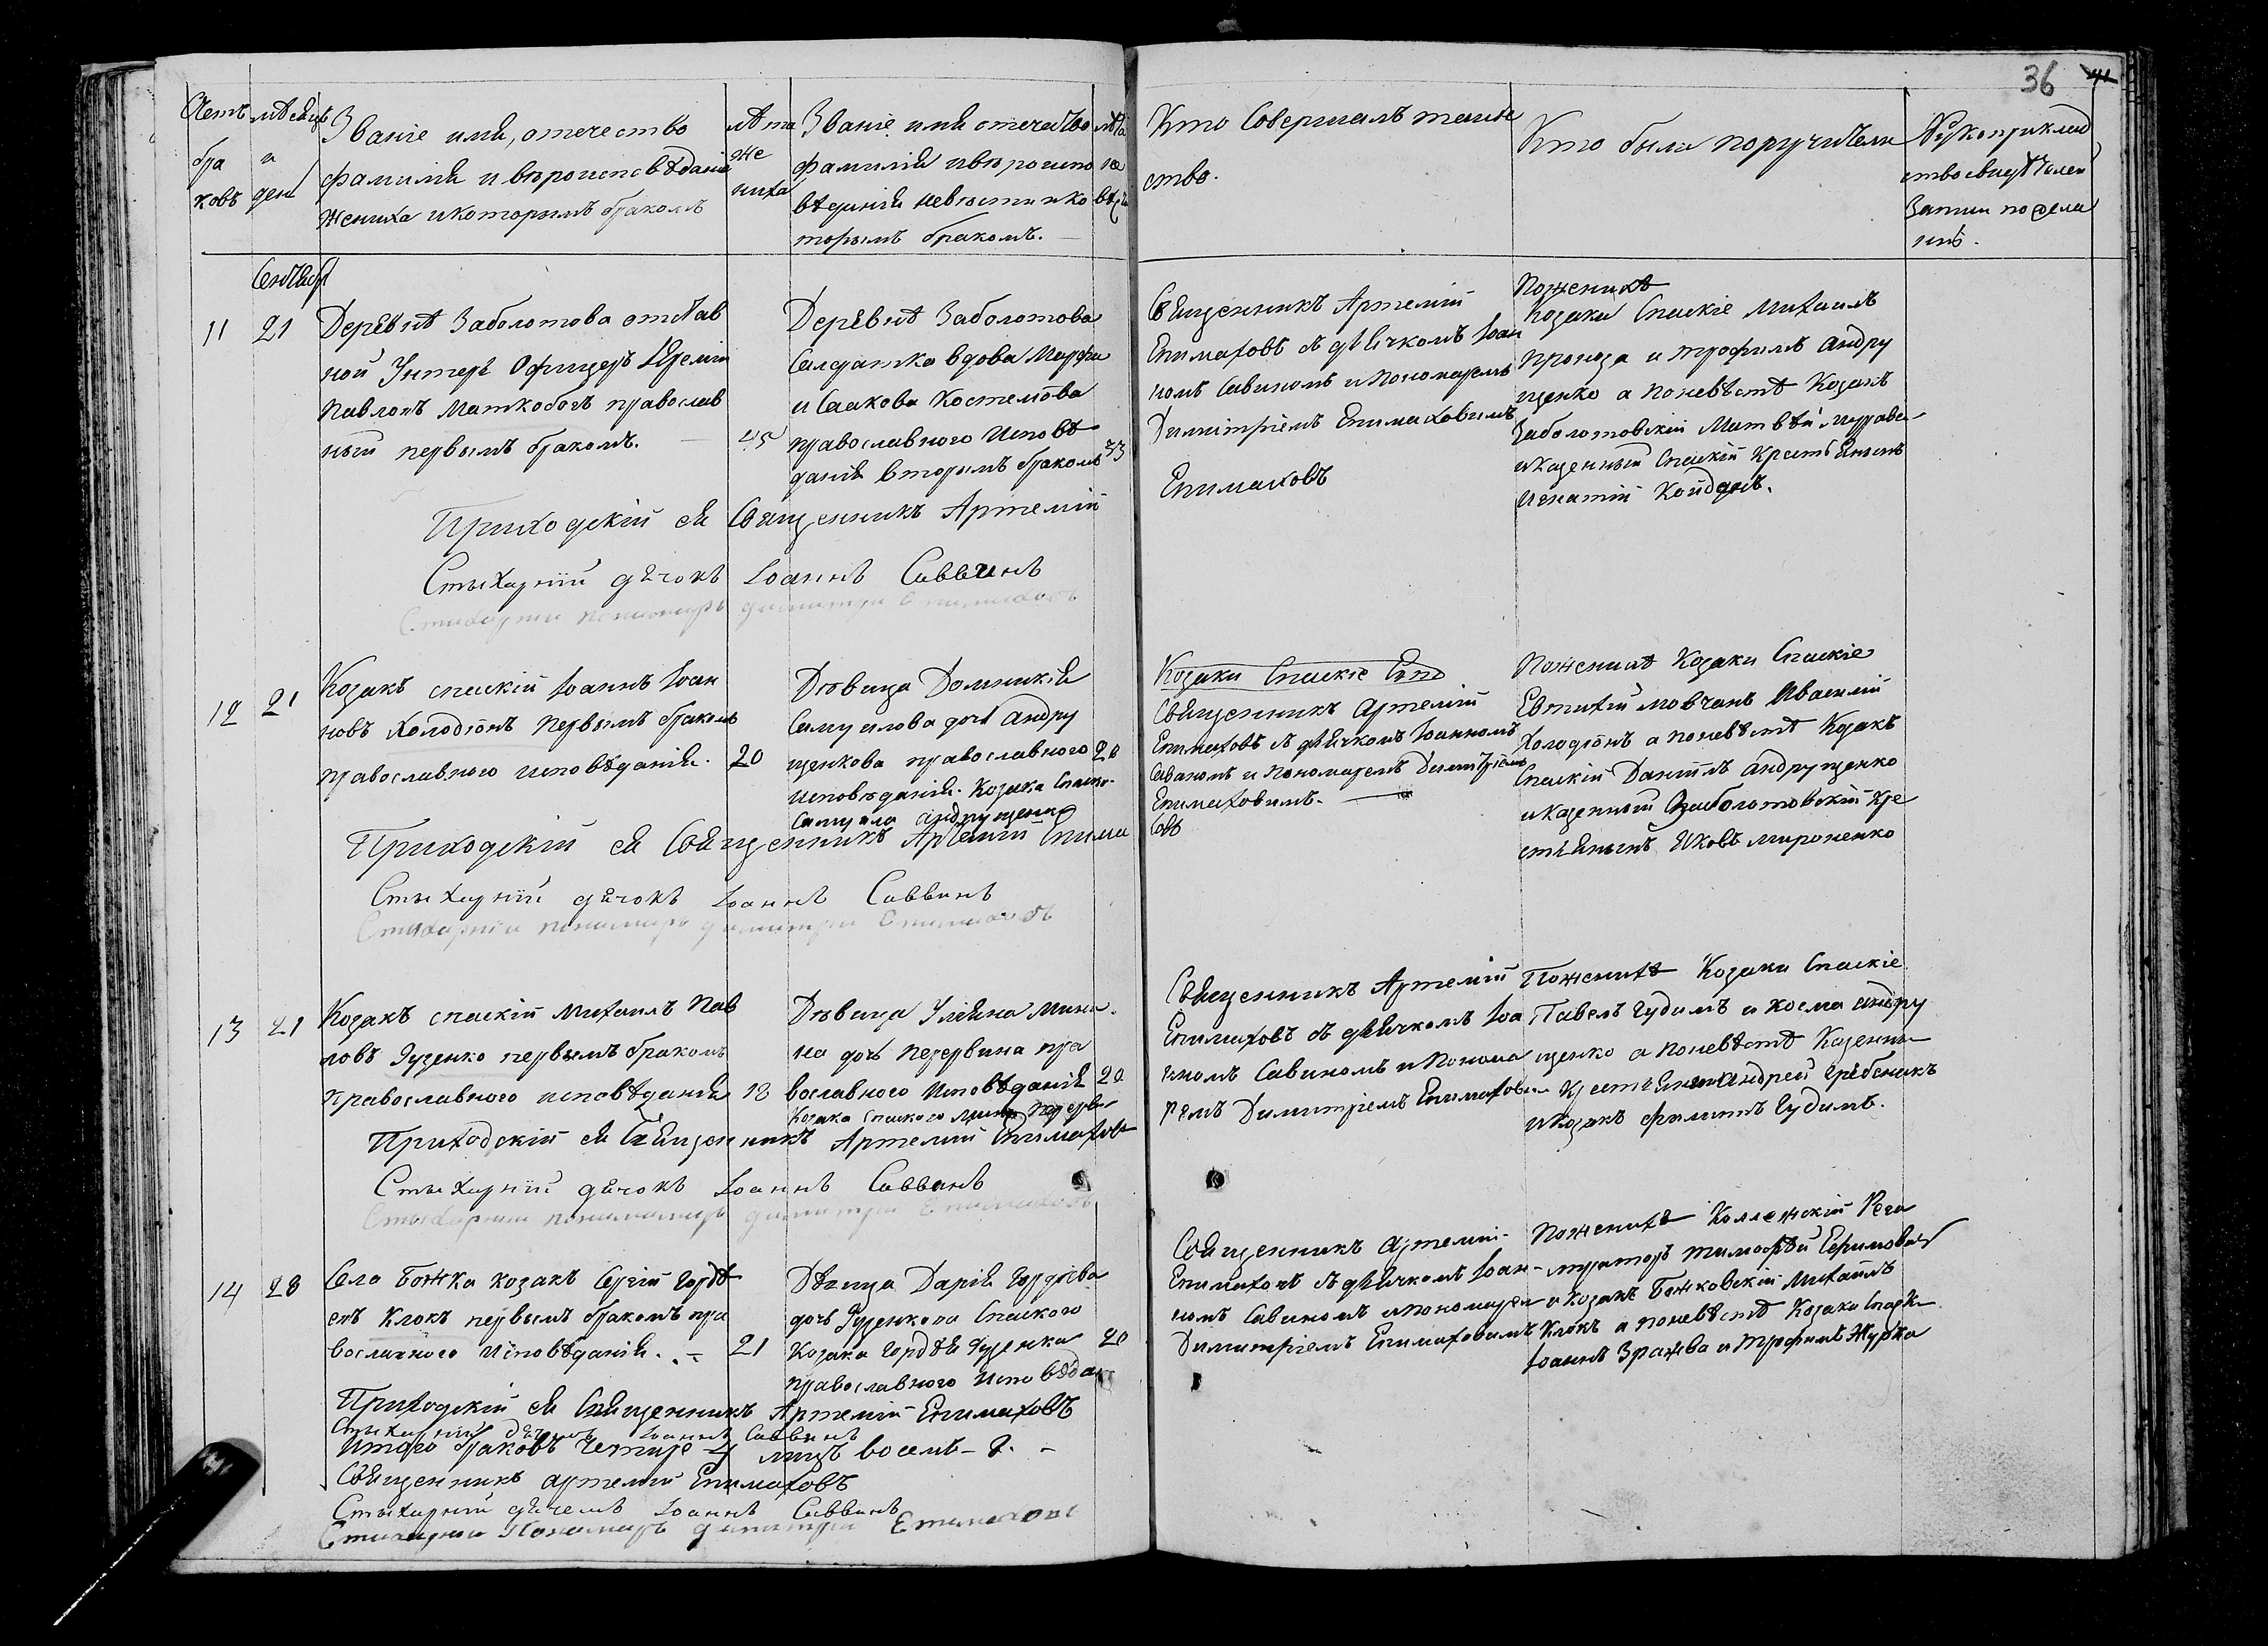 36 41
Счетъ
бра
ковъ
мѣсяцъ
и
ден
Званіе имя, отечество
фамилія и вѣроисповѣданіе
жениха и которымъ бракомъ
лѣта
же
ниха
Званіе имя отечество
фамилія и вѣроиспо
вѣданія невѣсти и ко
торымъ бракомъ.
лѣта
не
вѣс
Кто совершалъ таин
ство.
Кто были поручители
Рукоприклад
ство свидѣтелей
записи по жела
нію.
Сентябрь
11 21
Деревнѣ Заболотова отстав
ной Унтеръ Офицеръ
Павловъ православ
ный первымъ бракомъ.
45
Деревнѣ Заболотова
Салдатка вдова Марфа
Исаакова Костемова
православного Исповѣ
данія вторымъ бракомъ
33
Священникъ Артемій
Епимаховъ съ дьячкомъ Іоан
номъ Савиномъ и пономаремъ
Димитріемъ Епимаховымъ
Поженихѣ
Козаки Спаскіе Михаилъ
и трофимъ андру
щенко а поневѣстѣ Козакъ
Заболотовскій Матвѣй
и казенный Спаскій Крестьянинъ
Игнатій Койданъ.
Приходскій сей Священникъ Артемій
Епимаховъ
Стыхарній дячокъ Іоаннъ Саввинъ
Стихарний пономаръ димитри Епимаховъ
12 21
Козакъ спаскій Іоаннъ Іоан
новъ Холодіонъ первымъ бракомъ
православного исповѣданія.
20
Дѣвица Домникія
Самуилова дочь андру
щенкова православного
исповѣданія. Козака Спаско.
Самуила андрущенка
20
Козаки Спаскіе Епи
Священникъ артемій
Епимаховъ съ дьячкомъ Іоанномъ
Савиномъ и пономаремъ Димитріемъ
Епимаховимъ.
Поженихѣ Козаки Спаскіе
Евтихій мовчанъ Ивасилій
Холодіонъ а поневѣстѣ Козакъ
Спаскій Даніилъ андрущенко
и казенный Заболотовскій кре
стьянинъ Яковъ мироненко
Приходскій сей Священникъ Артемій Епима
ховъ
Стыхарній дячокъ Іоаннъ Саввинъ
Стихарний пономаръ димитри Епимаховъ
13 21
Козакъ спаскій Михаилъ Пав
ловъ Гуденко первымъ бракомъ
православного исповѣданія
18
Дѣвица Уліяна Мини.
на дочь Перервина пра
вославного Исповѣданія
Козака Спаского Мини Перерви
20
Священникъ Артемій
Епимаховъ съ дьячкомъ Іоа
нномъ Савиномъ и Понома
ремъ Димитріемъ Епимахови
Поженихѣ Козаки Спаскіе
Павелъ Гудимъ и Косма андру
щенко а поневѣстѣ Казенны
Крестьянинъ андрей Гребеникъ
и козакъ филипъ Гудимъ.
Приходскій сей Священникъ Артемій Епимаховъ
Стыхарній дячокъ Іоаннъ Саввинъ
Стыхарний пономаръ димитри Епимаховъ
14 28
Село Божка козакъ Сергій Гордѣ
евъ Клокъ первымъ бракомъ пра
вославного Исповѣданія.
21
Дѣвица Дарія Гордѣева
дочь Гуденкова Спаского
Козака Гордѣя Гуденка
православного Исповѣдан
20
Священникъ Артемій
Епимаховъ съ дьячкомъ Іоан
номъ Савиномъ и пономарем
Димитріемъ Епимаховимъ
Поженихѣ Коллежскій Реги
страторъ тимофѣй Ефимовъ
и козакъ Божковскій Михаилъ
Клокъ а поневѣстѣ Козаки Спаски
Іоаннъ Зражва и трофимъ Журба
Приходскій сей Священникъ Артемій Епимаховъ
Стыхарній дячокъ Іоаннъ Саввинъ
Итого браковъ четире 4 лицъ восемь - 8. -
Священникъ артемій Епимаховъ
Стыхарній дячокъ Іоаннъ Саввинъ
Стихарний Пономаръ димитри Епимаховъ